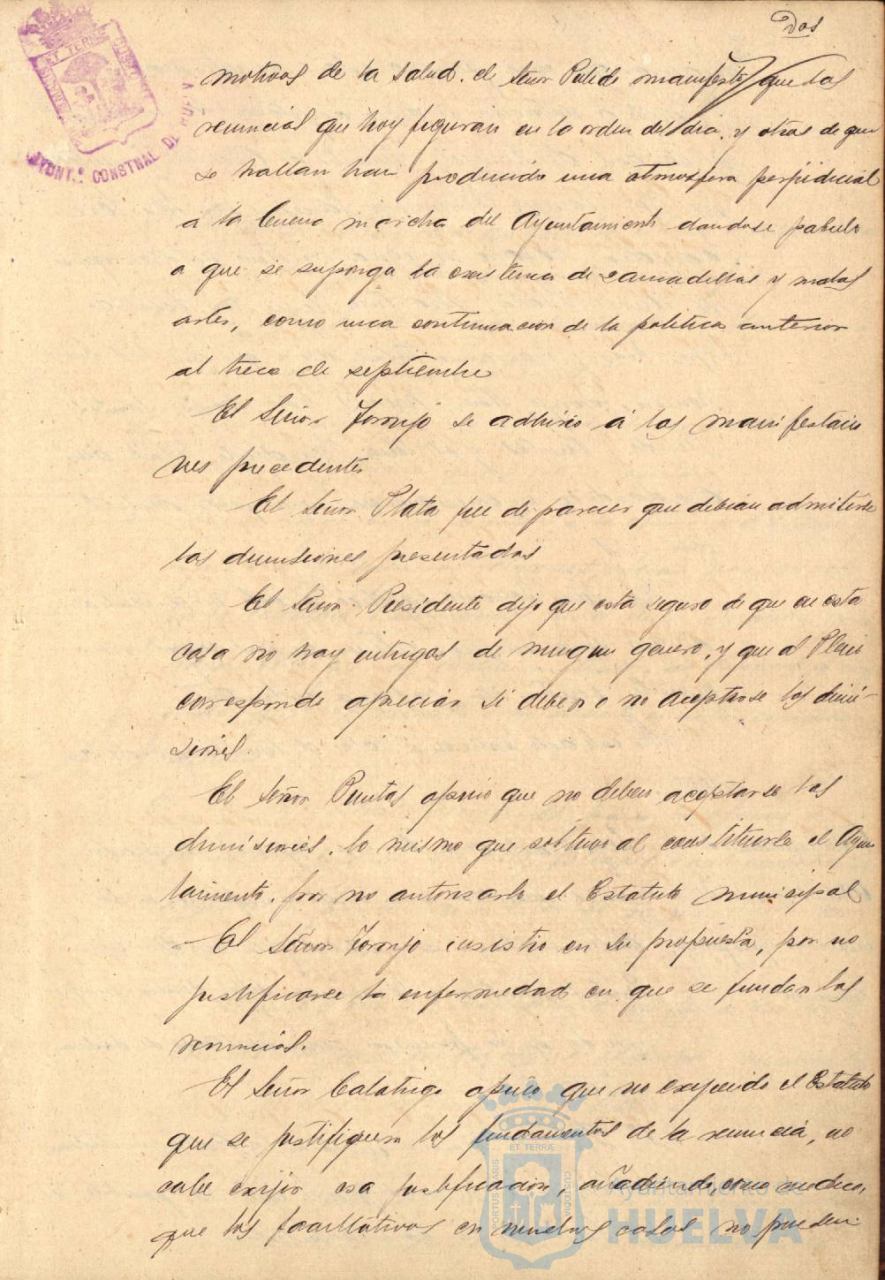 Dos
motivos de la salud. el Señor Pulido manifestó que las
renuncias que hoy figuran en la orden del dia, y otras de que
se hallan han producido una atmosfera perjudicial
a la buena marcha del Ayuntamiento dandose pabulo
a que se suponga la existencia de camadillas y malas
artes, como una continuacion de la politica anterior
al trece de septiembre
El Señor Toronjo se adhirio á las manifestacio
nes precedentes
El Señor Plata fue de parecer que debian admitirse
las dimisiones presentadas
El Señor Presidente dijo que esta seguro de que en esta
casa no hay intrigas de ningun genero, y que al Pleno
corresponde apreciar si deben o no aceptarse las dimi-
siones.
El Señor Puntas opino que no deben aceptarse las
dimisiones, lo mismo que sostuvo al constituirse el Ayun
tamiento, por no autorizarlo el Estatuto municipal
El Señor Toronjo insistio en su propuesta, por no
justificarse la enfermedad en que se fundan las
renuncias.
El Señor Calatrigo opino que no exijiendo el Estatuto
que se justifiquen los fundamentos de la renuncia, no
cabe exijir esa justificacion, añadiendo, como medico,
que los facultativos en muchos casos no pueden
AYUNT.º CONSTNAL DE
PORTUS MARIS ET TERRAE CUSTODIA
Ayuntamiento de
HUELVA